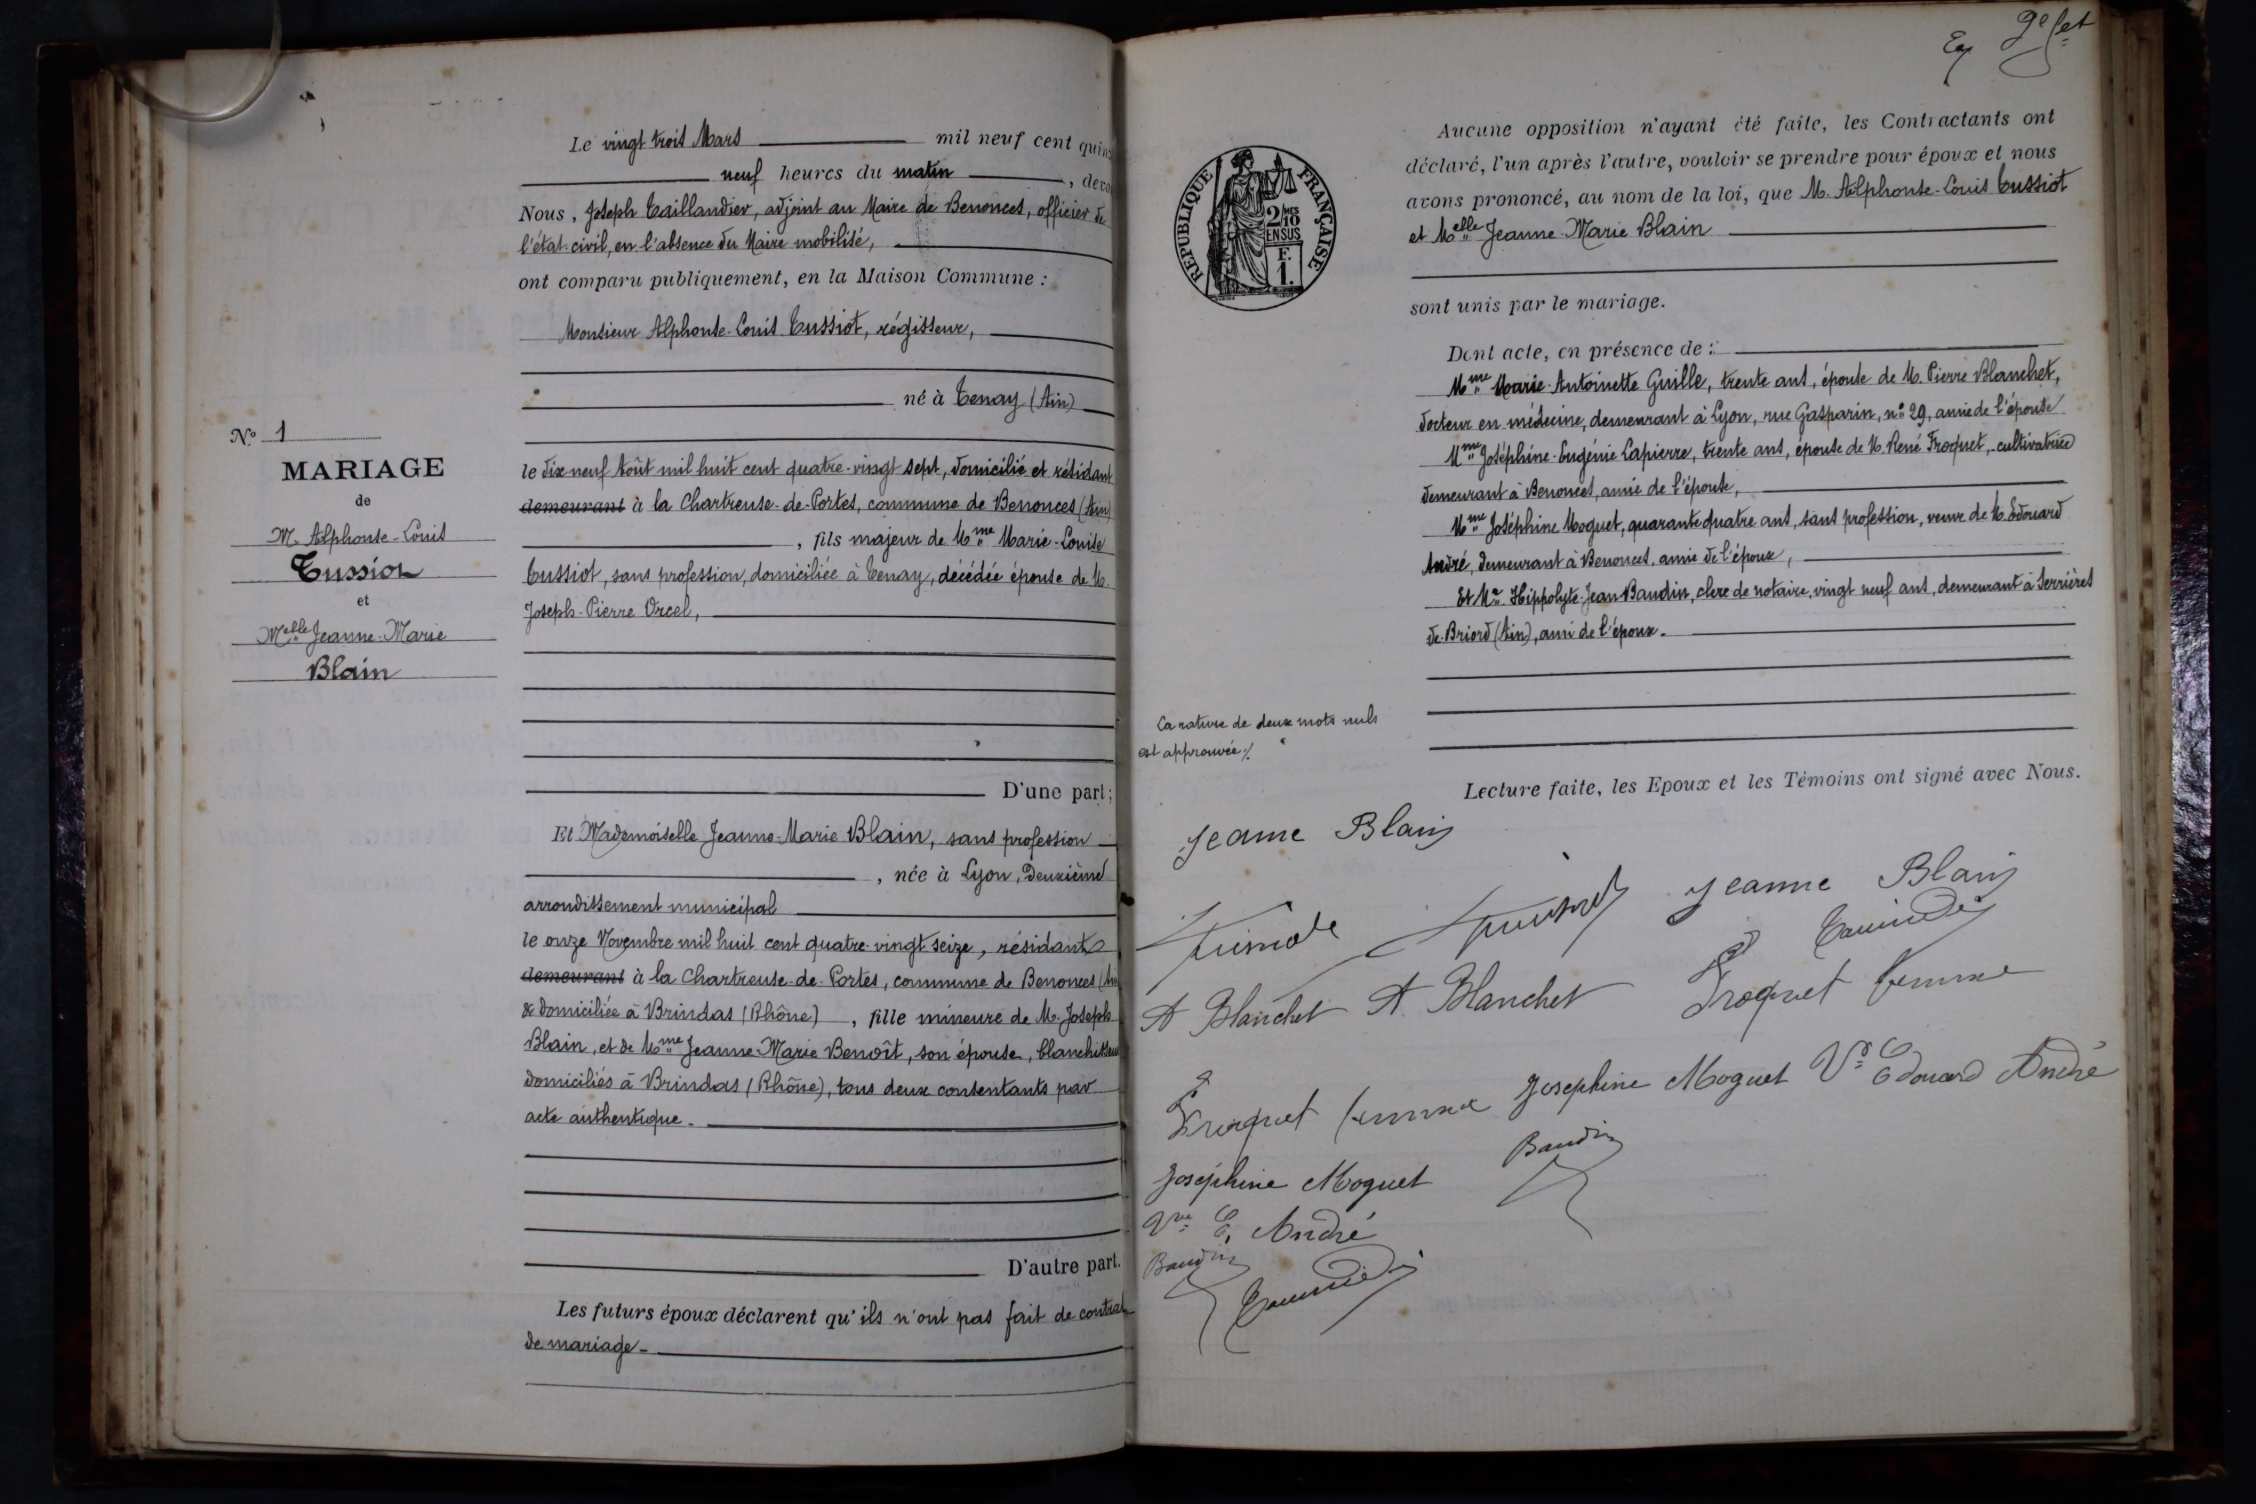 Le vingt trois Mars mil neuf cent quin
neuf heures du matin, deva
Nous, Joseph Taillandier, adjoint au Maire de Benonces, officier de
l'état-civil, en l'absence du Maire mobilisé,
ont comparu publiquement, en la Maison Commune :
Monsieur Alphonse-Louis Tussiot, régisseur,
né à Tenay (Ain)
le dix neuf Août mil huit cent quatre-vingt sept, domicilié et résidant
demeurant à la Chartreuse-de-Portes, commune de Benonces (Ain)
, fils majeur de Mme Marie-Louise
Tussiot, sans profession, domiciliée à Tenay, décédée épouse de M.
Joseph-Pierre Orcel,
D'une part;
Et Mademoiselle Jeanne-Marie Blain, sans profession
, née à Lyon, Deuxième
arrondissement municipal
le onze Novembre mil huit cent quatre-vingt seize, résidant
demeurant à la Chartreuse-de-Portes, commune de Benonces (Ain
& domiciliée à Brindas (Rhône), fille mineure de M. Joseph
Blain, et de Mme Jeanne-Marie Benoît, son épouse, blanchisseu
domiciliés à Brindas (Rhône), tous deux consentants par
acte authentique.
D'autre part.
Les futurs époux déclarent qu'ils n'ont pas fait de contrat
de mariage.
No 1
MARIAGE
de
M. Alphonse-Louis
Tussiot
et
Melle Jeanne-Marie
Blain
2e fet
RÉPUBLIQUE FRANÇAISE
2/10 MES
EN SUS
F.
1.
Aucune opposition n'ayant été faite, les Contractants ont
déclaré, l'un après l'autre, vouloir se prendre pour époux et nous
avons prononcé, au nom de la loi, que M. Alphonse-Louis Tussiot
et Melle Jeanne-Marie Blain
sont unis par le mariage.
Dont acte, en présence de :
Mme Marie-Antoinette Guille, trente ans, épouse de M. Pierre Blanchet,
docteur en médecine, demeurant à Lyon, rue Gasparin, no 29, amie de l'épouse
Mme Joséphine-Eugénie Lapierre, trente ans, épouse de M. René Froquet, cultivatrice
demeurant à Benonces, amie de l'épouse,
Mme Joséphine Moguet, quarante quatre ans, sans profession, veuve de M. Edouard
André, demeurant à Benonces, amie de l'époux,
Et Mr Hippolyte-Jean Baudin, clerc de notaire, vingt neuf ans, demeurant à Serrières
de-Briord (Ain), ami de l'époux.
La rature de deux mots nuls
est approuvée /.
Lecture faite, les Epoux et les Témoins ont signé avec Nous.
Jeanne Blain
Jeanne Blain
A Blanchet A. Blanchet Froquet femme
Froquet femme Josephine Moguet Ve Edouard André
Baudin
Joséphine Moguet
Vve E. André
Baudin